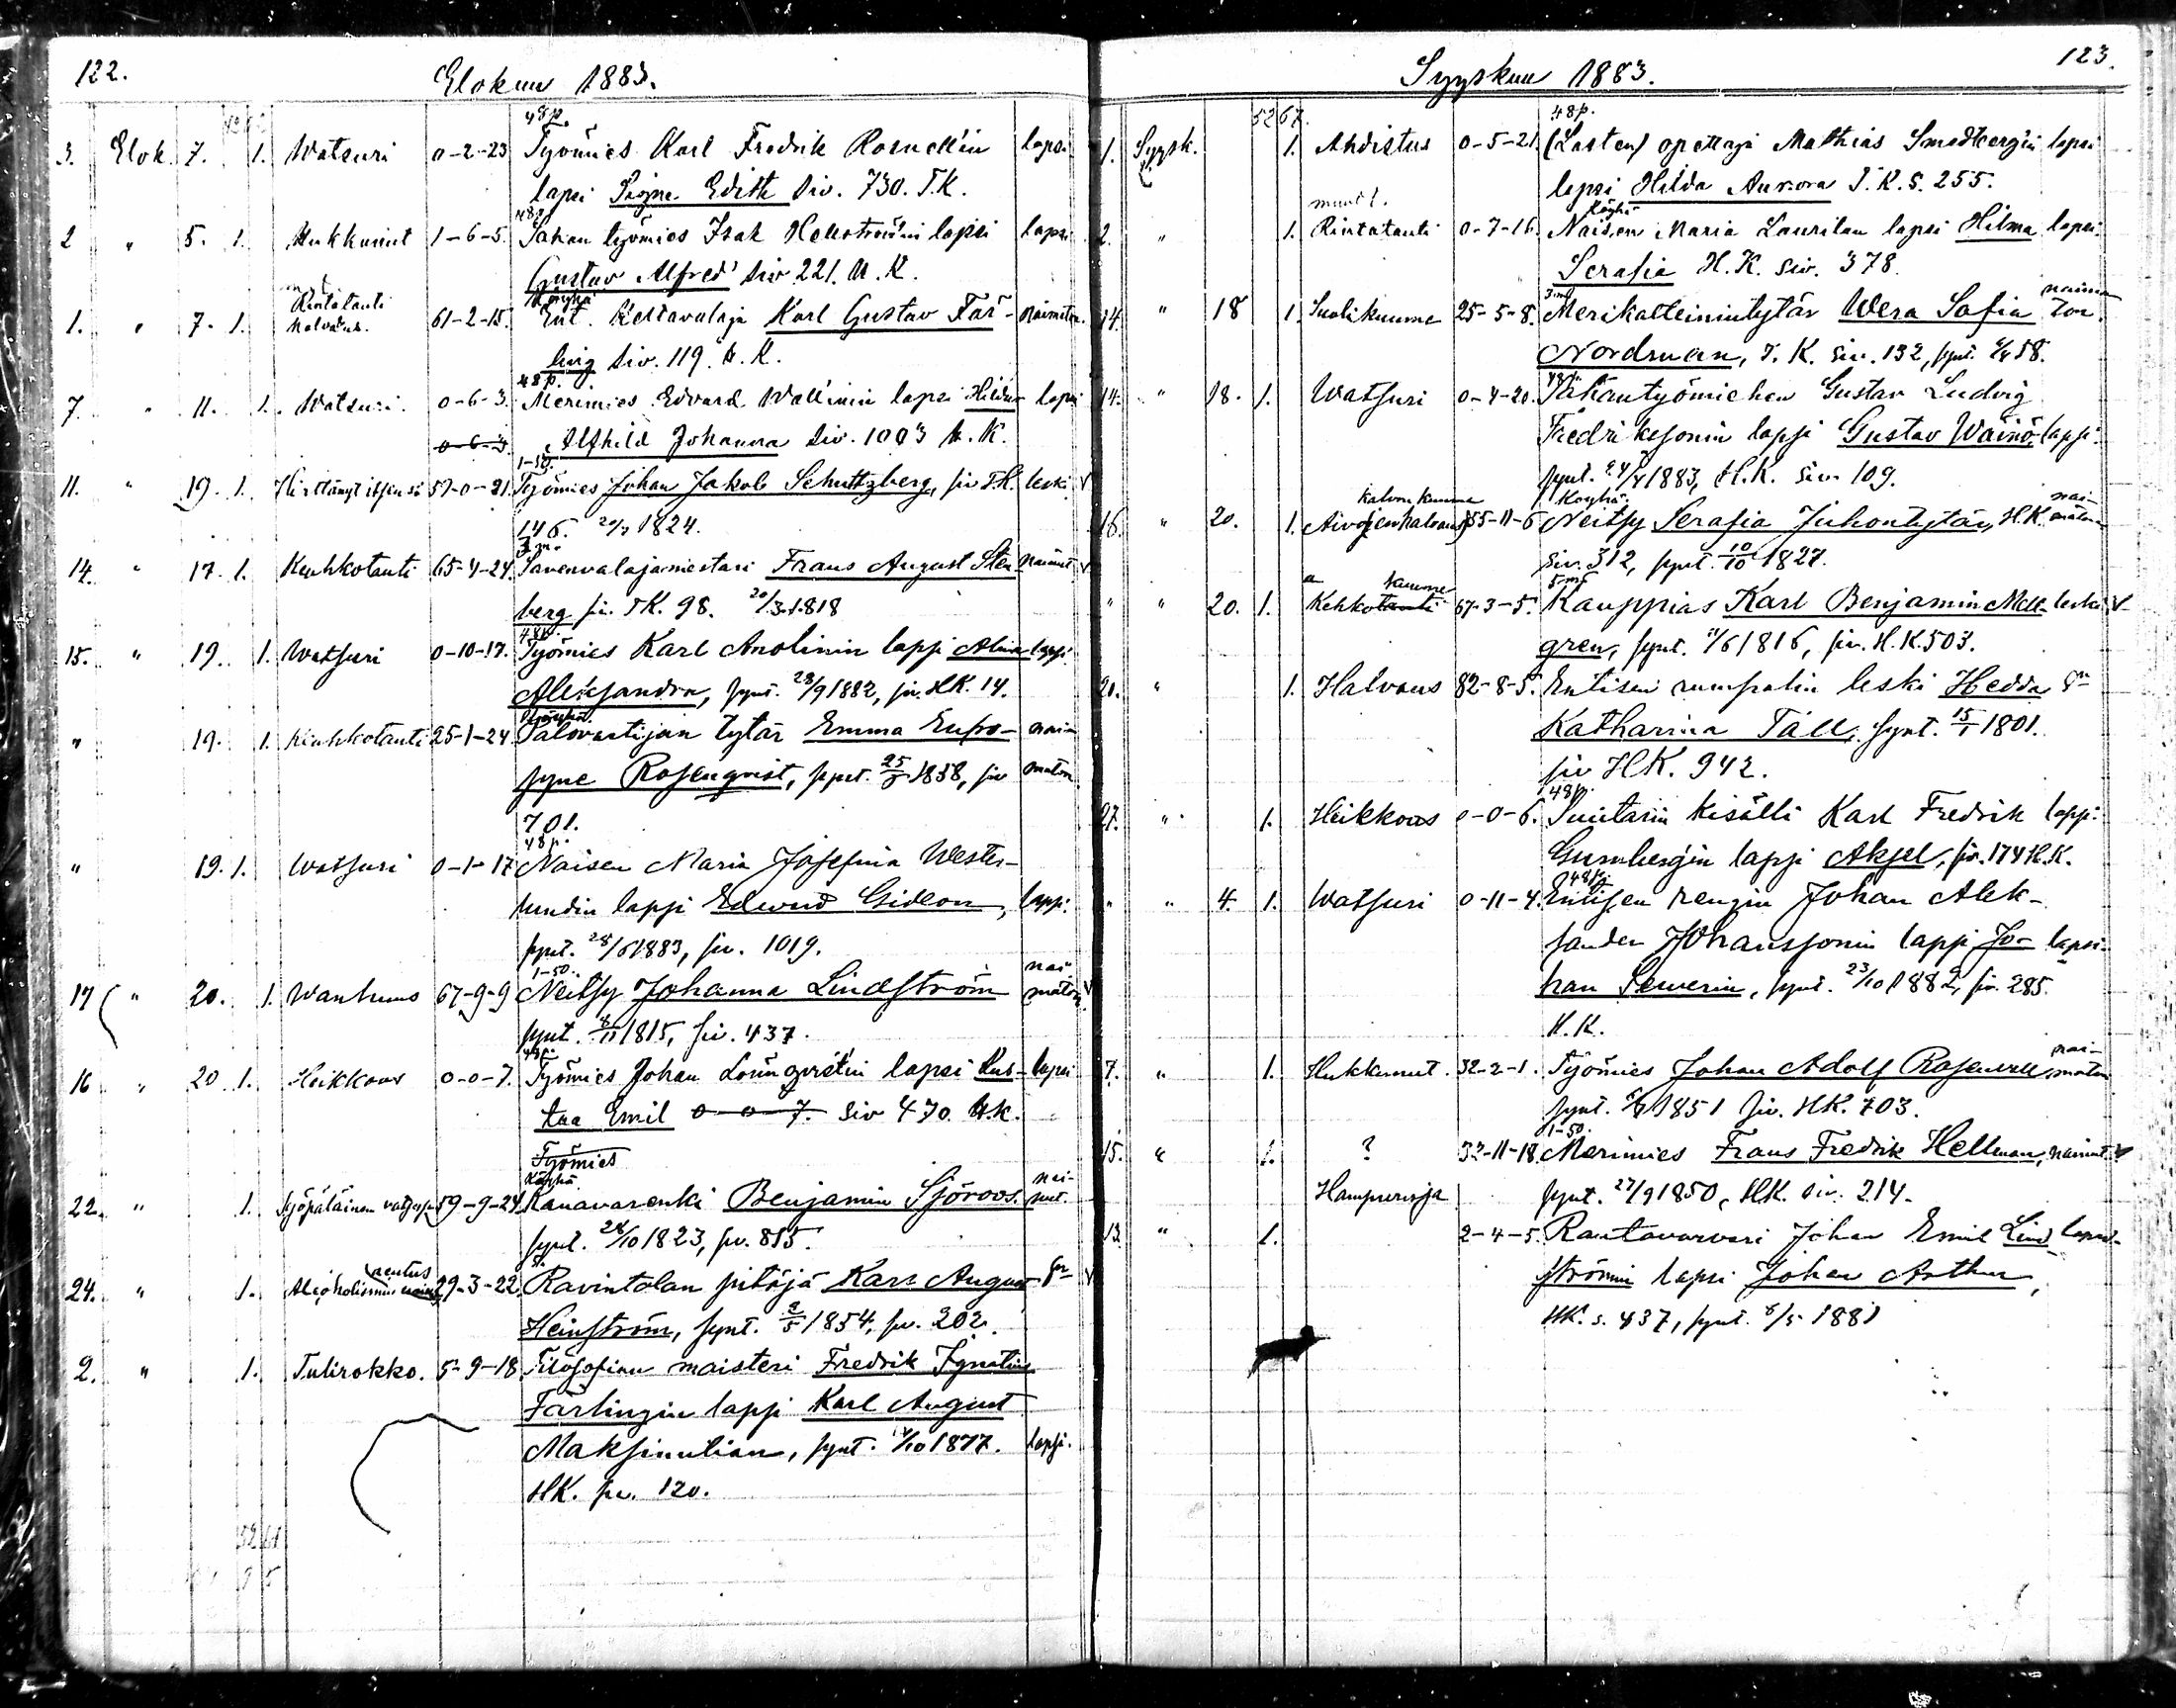 122.
Elokuu 1883.
48p.
3. Elok. 7. 1. Watsuri 0-2-23 Työmies Karl Fredrik Rosnell'in lapsi
lapsi Signe Edith siv. 730. T.K.
48p
2 " 5. 1. Hukkunut 1-6-5. Sahan työmies Isak Hellström'in lapsi lapsi
Gustav Alfred siv 221. U.K.
Rintatauti Köyhä
1. " 7. 1. halvaus. 61-2-15. Ent. Kellavalaja Karl Gustav Fär- naimaton
ling siv. 119. H.K.
48p.
7. " 11. 1. Watsuri. 0-6-3. Merimies Edvard Wallinin lapsi Hildur lapsi
0-6-3 Alfhild Johanna siv. 1003 H.K.
1-50.
11. " 19. 1. Hirttänyt itsensä 59-0-21. Työmies Johan Jakob Schultzberg, siv T.K. leski. v
146. 20/7 1824.
3 m.
14. " 17. 1. Keuhkotauti 65-4-24. Savenvalajamestari Frans August Sten- nainut v
berg siv. T.K. 98. 20/3 1818
48p.
15. " 19. 1. Watsuri 0-10-17. Työmies Karl Anolinin lapsi Alina lapsi.
Aleksandra, synt. 28/9 1882, siv. H.K. 14.
Köyhä.
" 19. 1. Keuhkotauti 25-1-24 Palovartijan tytär Emma Eufro- nai-
syne Rosenqvist, synt. 25/5 1858, siv maton
701.
48p.
" 19. 1. Watsuri 0-1-17 Naisen Maria Josefina Wester-
lundin lapsi Edward Gideon, lapsi.
synt. 28/6 1883, siv. 1019.
1-50. nai-
17 " 20. 1. Wanhuus 67-9-9 Neitsy Johanna Lindström maton v
synt. 8/11 1815, siv. 437.
48p.
16 " 20 1. Heikkous 0-0-7. Työmies Johan Lönnqvist'in lapsi Kus- lapsi
taa Emil 0-0-7. siv 470. H.K.
Työmies
Köyhä nai-
22. " 1. Syöpäläinen vatsassa 59-9-24 Kanavarenki Benjamin Sjöroos. nut.
synt. 28/10 1823, siv. 815.
24. " 1. 29-3-22 Ravintolan pitäjä Karl August v
Heinström, synt. 2/5 1854, siv. 202.
2. " 1. Tulirokko. 5-9-18 Filosofian maisteri Fredrik Ignatius
Färlingin lapsi Karl August
Maksimilian, synt. 14/10 1877. lapsi.
HK. siv. 120.
52 61
123.
Syyskuu 1883.
52 67. 48p.
1. Syysk. 1. Ahdistus 0-5-21. (Lasten) opettaja Mathias Smedberg'in lapsi
lapsi Hilda Aurora T.K.S. 255.
Köyhä
2. " 1. Rintatauti 0-7-16. Naisen Maria Laurilan lapsi Hilma lapsi.
Serafia H.K. siv. 378.
3 m naima-
14. " 18 1. Suolikuume 25-5-8. Merikatteinintytär Wera Sofia ton.
Nordman, T.K. siv. 132, synt. 58.
48p
14. " 18. 1. Watsuri 0-4-20. Sahantyömiehen Gustav Ludvig
Fredrikssonin lapsi Gustav Wäinö lapsi.
synt. 24/4 1883, H.K. siv. 109.
kalvon kuume Köyhä. nai-
16. " 20. 1. Aivojenhalvaus 55-11-6 Neitsy Serafia Juhontytär, H.K. maton
siv. 312, synt. 10/10 1827.
kuume 5 m
" " 20. 1. Kehkotauti 67-3-5. Kauppias Karl Benjamin Mell- leski v
gren, synt. 11/6 1816, siv. H.K. 503.
20. " 1. Halvaus 82-8-5. Entisen rumpalin leski Hedda
Katharina Täll, synt. 15/1 1801.
siv H.K. 942.
48p.
27. " 1. Heikkous 0-0-6. Suutarin kisälli Karl Fredrik lapsi.
Gurnberg'in lapsi Aksel, siv. 174 H.K.
48p.
" " 4. 1. Watsuri 0-11-4. Entisen rengin Johan Alek-
sander Johanssonin lapsi Jo- lapsi.
han Severin, synt. 23/10 1882, siv. 285.
H.K.
nai-
7. " 1. Hukkunut. 32-2-1. Työmies Johan Adolf Rosenvall maton
synt. 1851 siv. HK. 703.
1-50.
15. " 1. ? 32-11-18. Merimies Frans Fredrik Hellman, nainut v
Hampurissa synt. 27/9 1850, HK. siv. 214.
13. " 1. 2-4-5. Rautavarvari Johan Emil Lind- lapsi.
strömin lapsi Johan Arthur,
HK. s. 437, synt. 8/5 1881